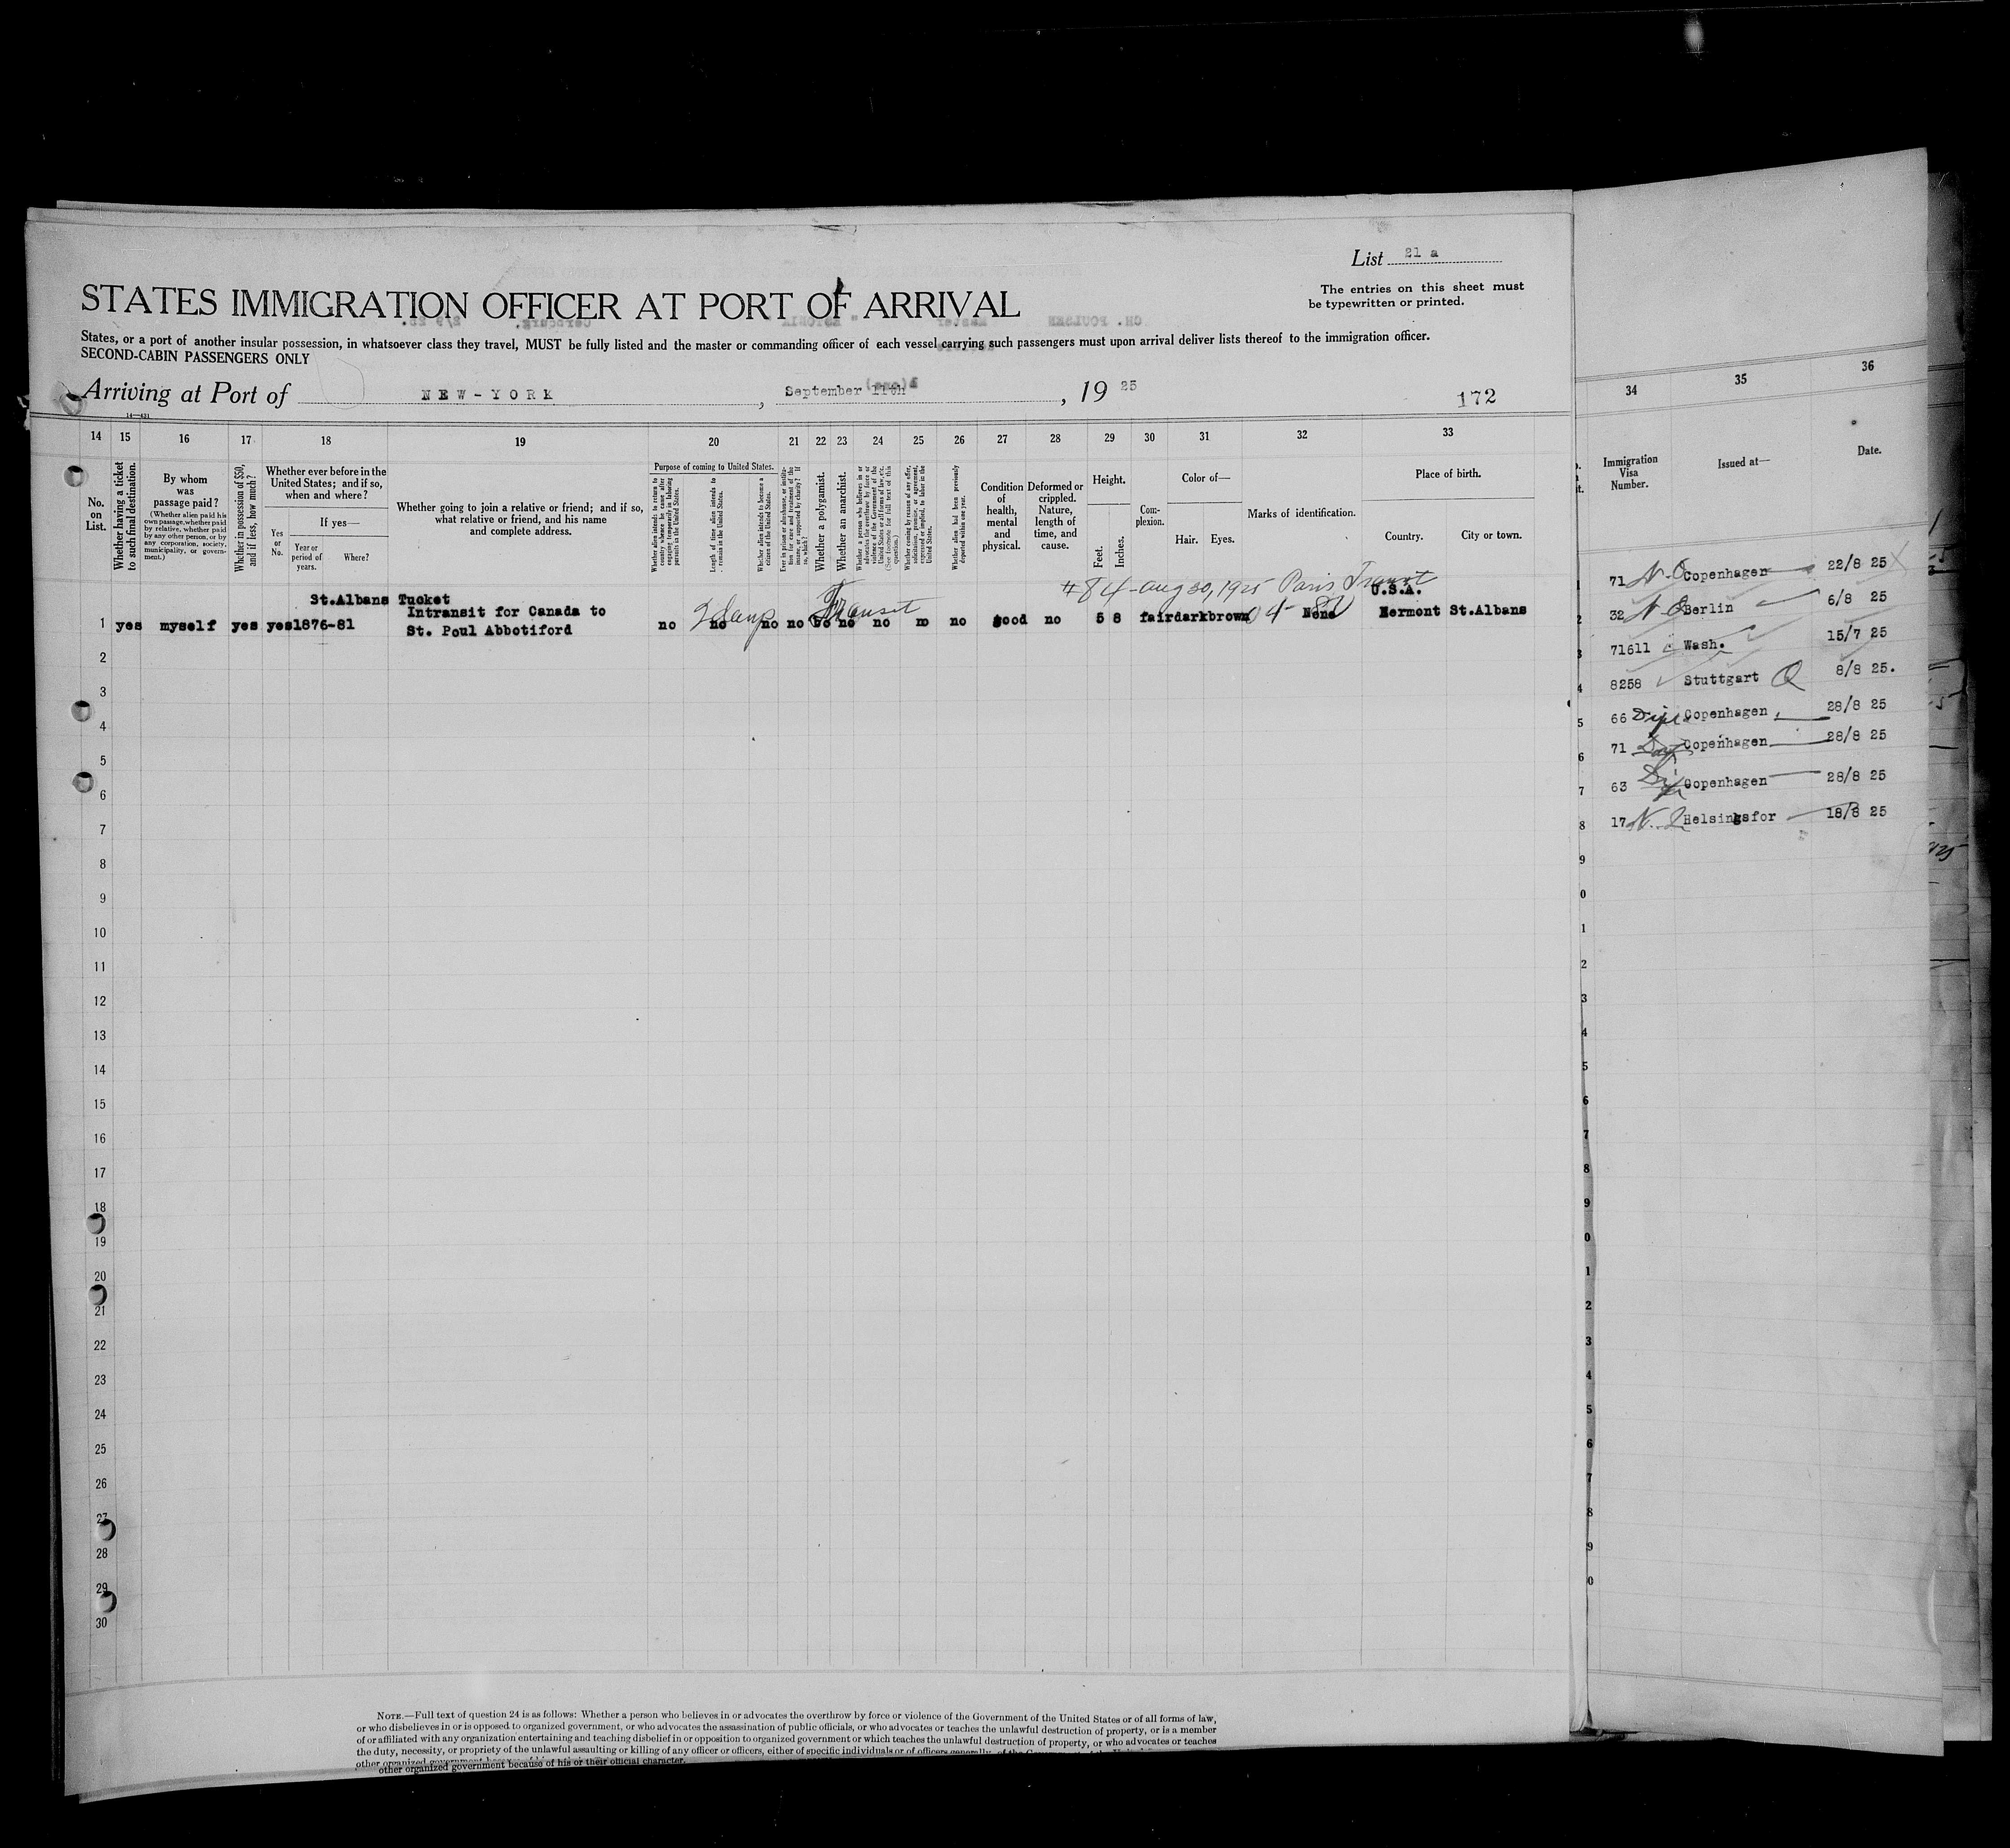 List 21 a
The entries on this sheet must
be typewritten or printed.
STATES IMMIGRATION OFFICER AT PORT OF ARRIVAL
States, or a port of another insular possession, in whatsoever class they travel, MUST be fully listed and the master or commanding officer of each vessel carrying such passengers must upon arrival deliver lists thereof to the immigration officer.
SECOND-CABIN PASSENGERS ONLY
Arriving at Port of NEW-YORK, September 11th, 19 25
172
14 15 16 17 18 19 20 21 22 23 24 25 26 27 28 29 30 31 32 33
No. on List.
Whether having a ticket to such final destination.
By whom was passage paid?
(Whether alien paid his own passage, whether paid by relative, whether paid by any other person, or by any corporation, society, municipality, or government.)
Whether in possession of $50, and if less, how much?
Whether ever before in the United States; and if so, when and where?
Yes or No.
If yes—
Year or period of years.
Where?
Whether going to join a relative or friend; and if so, what relative or friend, and his name and complete address.
Purpose of coming to United States.
Whether alien intends to return to country whence he came after engaging temporarily in laboring pursuits in the United States.
Length of time alien intends to remain in the United States.
Whether alien intends to become a citizen of the United States.
Ever in prison or almshouse, or institution for care and treatment of the insane, or supported by charity? If so, which?
Whether a polygamist.
Whether an anarchist.
Whether a person who believes in or advocates the overthrow by force or violence of the Government of the United States or all forms of law, etc. (See footnote for full text of this question.)
Whether coming by reason of any offer, solicitation, promise, or agreement, expressed or implied, to labor in the United States.
Whether alien had been previously deported within one year.
Condition of health, mental and physical.
Deformed or crippled. Nature, length of time, and cause.
Height.
Feet.
Inches.
Complexion.
Color of—
Hair. Eyes.
Marks of identification.
Place of birth.
Country. City or town.
#84 - Aug 30, 1925 Paris Transit
St.Albans Tucket U.S.A.
Intransit for Canada to
1 yes myself yes yes1876-81 St. Poul Abbotiford no no no no no no no no good no 5 8 fairdarkbrown None Mermont St.Albans
Transit
2
3
4
5
6
7
8
9
10
11
12
13
14
15
16
17
18
19
20
21
22
23
24
25
26
27
28
29
30
NOTE.—Full text of question 24 is as follows: Whether a person who believes in or advocates the overthrow by force or violence of the Government of the United States or of all forms of law,
or who disbelieves in or is opposed to organized government, or who advocates the assassination of public officials, or who advocates or teaches the unlawful destruction of property, or is a member
of or affiliated with any organization entertaining and teaching disbelief in or opposition to organized government or which teaches the unlawful destruction of property, or who advocates or teaches
the duty, necessity, or propriety of the unlawful assaulting or killing of any officer or officers, either of specific individuals or of officers generally, of the
other organized government because of his or their official character.
34 35 36
Immigration Visa Number.
Issued at—
Date.
71 Copenhagen 22/8 25
32 Berlin 6/8 25
71611 Wash. 15/7 25
8258 Stuttgart 8/8 25.
66 Dipl Copenhagen 28/8 25
71 Copenhagen 28/8 25
63 Copenhagen 28/8 25
17 Helsingsfor 18/8 25